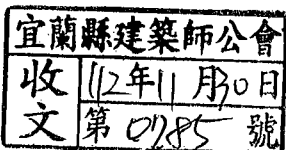 宜蘭縣建築師公會
收文
112年11月30日
第0785號